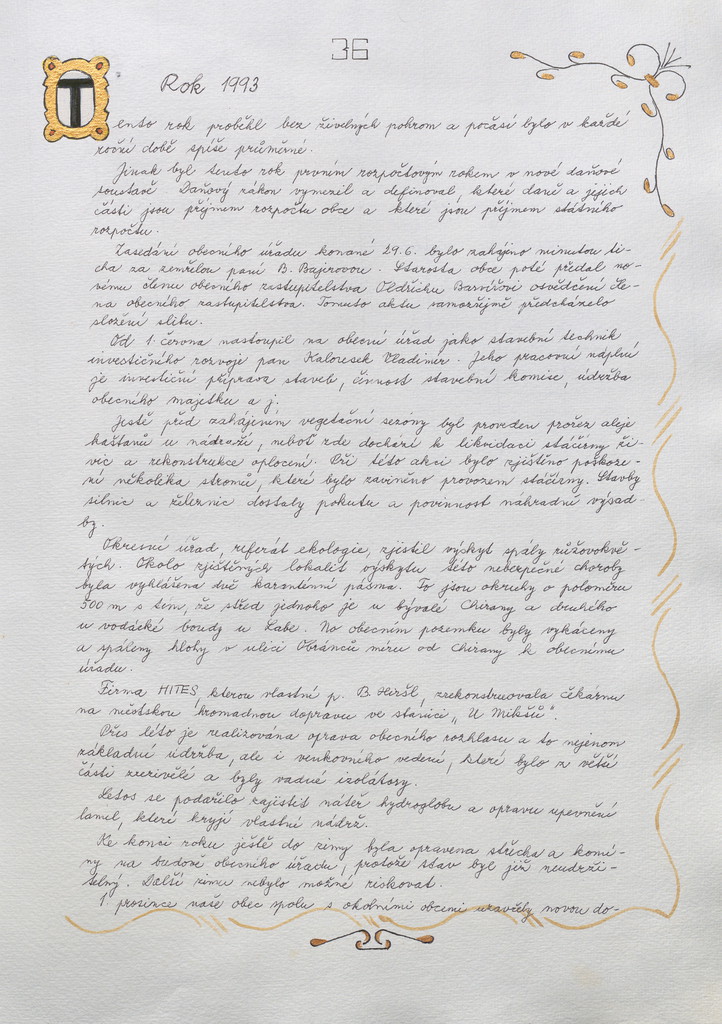 36
Rok 1993
Tento rok proběhl bez živelných pohrom a počasí bylo v každé
roční době spíše průměrné.
Jinak byl tento rok prvním rozpočtovým rokem v nové daňové
soustavě. Daňový zákon vymezil a definoval, které daně a jejich
části jsou příjmem rozpočtu obce a které jsou příjmem státního
rozpočtu.
Zasedání obecního úřadu konané 29.6. bylo zahájeno minutou ti-
cha za zemřelou paní B. Bajerovou. Starosta obce poté předal no-
vému členu obecního zastupitelstva Oldřichu osvědčení čle-
na obecního zastupitelstva. Tomuto aktu samozřejmě předcházelo
složení slibu.
Od 1. června nastoupil na obecní úřad jako stavební technik
investičního rozvoje pan Kalousek Vladimír. Jeho pracovní náplní
je investiční příprava staveb, činnost stavební komise, údržba
obecního majetku a j.
Ještě před zahájením vegetační sezóny byl proveden prořez aleje
kaštanů u nádraží, neboť zde dochází k likvidaci stáčírny ži-
vic a rekonstrukce oplocení. Při této akci bylo zjištěno poškoze-
ní několika stromů, které bylo zaviněno provozem stáčírny. Stavby
silnic a železnic dostaly pokutu a povinnost náhradní výsad-
by.
Okresní úřad, referát ekologie, zjistil výskyt spály růžovokvě-
tých. Okolo zjištěných lokalit výskytu této nebezpečné choroby
byla vyhlášena dvě karanténní pásma. To jsou okruhy o poloměru
500 m s tím, že střed jednoho je u bývalé Chirany a druhého
u vodácké boudy u Labe. Na obecním pozemku byly vykáceny
a spáleny hlohy v ulici Obránců míru od Chirany k obecnímu
úřadu.
Firma HITES, kterou vlastní p. B. Hiršl, zrekonstruovala čekárnu
na městskou hromadnou dopravu ve stanici „U Mikšů".
Přes léto je realizována oprava obecního rozhlasu a to nejenom
základní údržba, ale i venkovního vedení, které bylo z větší
části zrezivělé a byly vadné izolátory.
Letos se podařilo zajistit nátěr hydroglobu a opravu upevnění
lamel, které kryjí vlastní nádrž.
Ke konci roku ještě do zimy byla opravena střecha a komí-
ny na budově obecního úřadu, protože stav byl již neudrži-
telný. Další zimu nebylo možné riskovat.
1. prosince naše obec spolu s okolními obcemi uzavřely novou do-